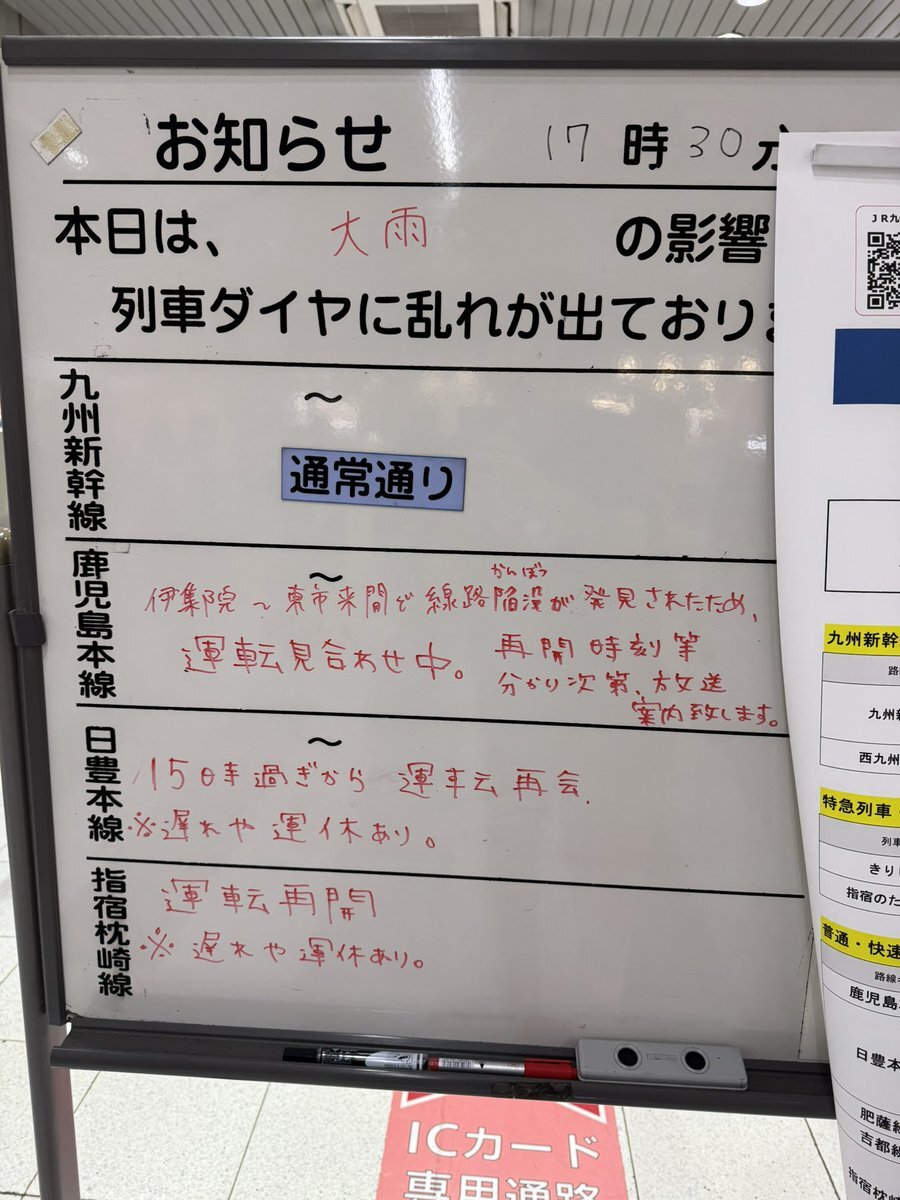 お知らせ 17時30
本日は、大雨の影響
列車ダイヤに乱れが出ており
九州新幹線
～
通常通り
鹿児島本線
～
伊集院～東市来間で線路陥没が発見されたため、
かんぼつ
運転見合わせ中。
再開時刻等
分かり次第、放送
案内致します。
日豊本線
～
15時過ぎから 運転再会.
※遅れや運休あり。
指宿枕崎線
運転再開
※遅れや運休あり。
ICカード
専用通路
JR九
九州新幹
九州新
西九州
特急列車・
列車
きり
指宿のた
普通・快速
路線名
鹿児島本
日豊本
肥薩線
吉都線
指宿枕崎